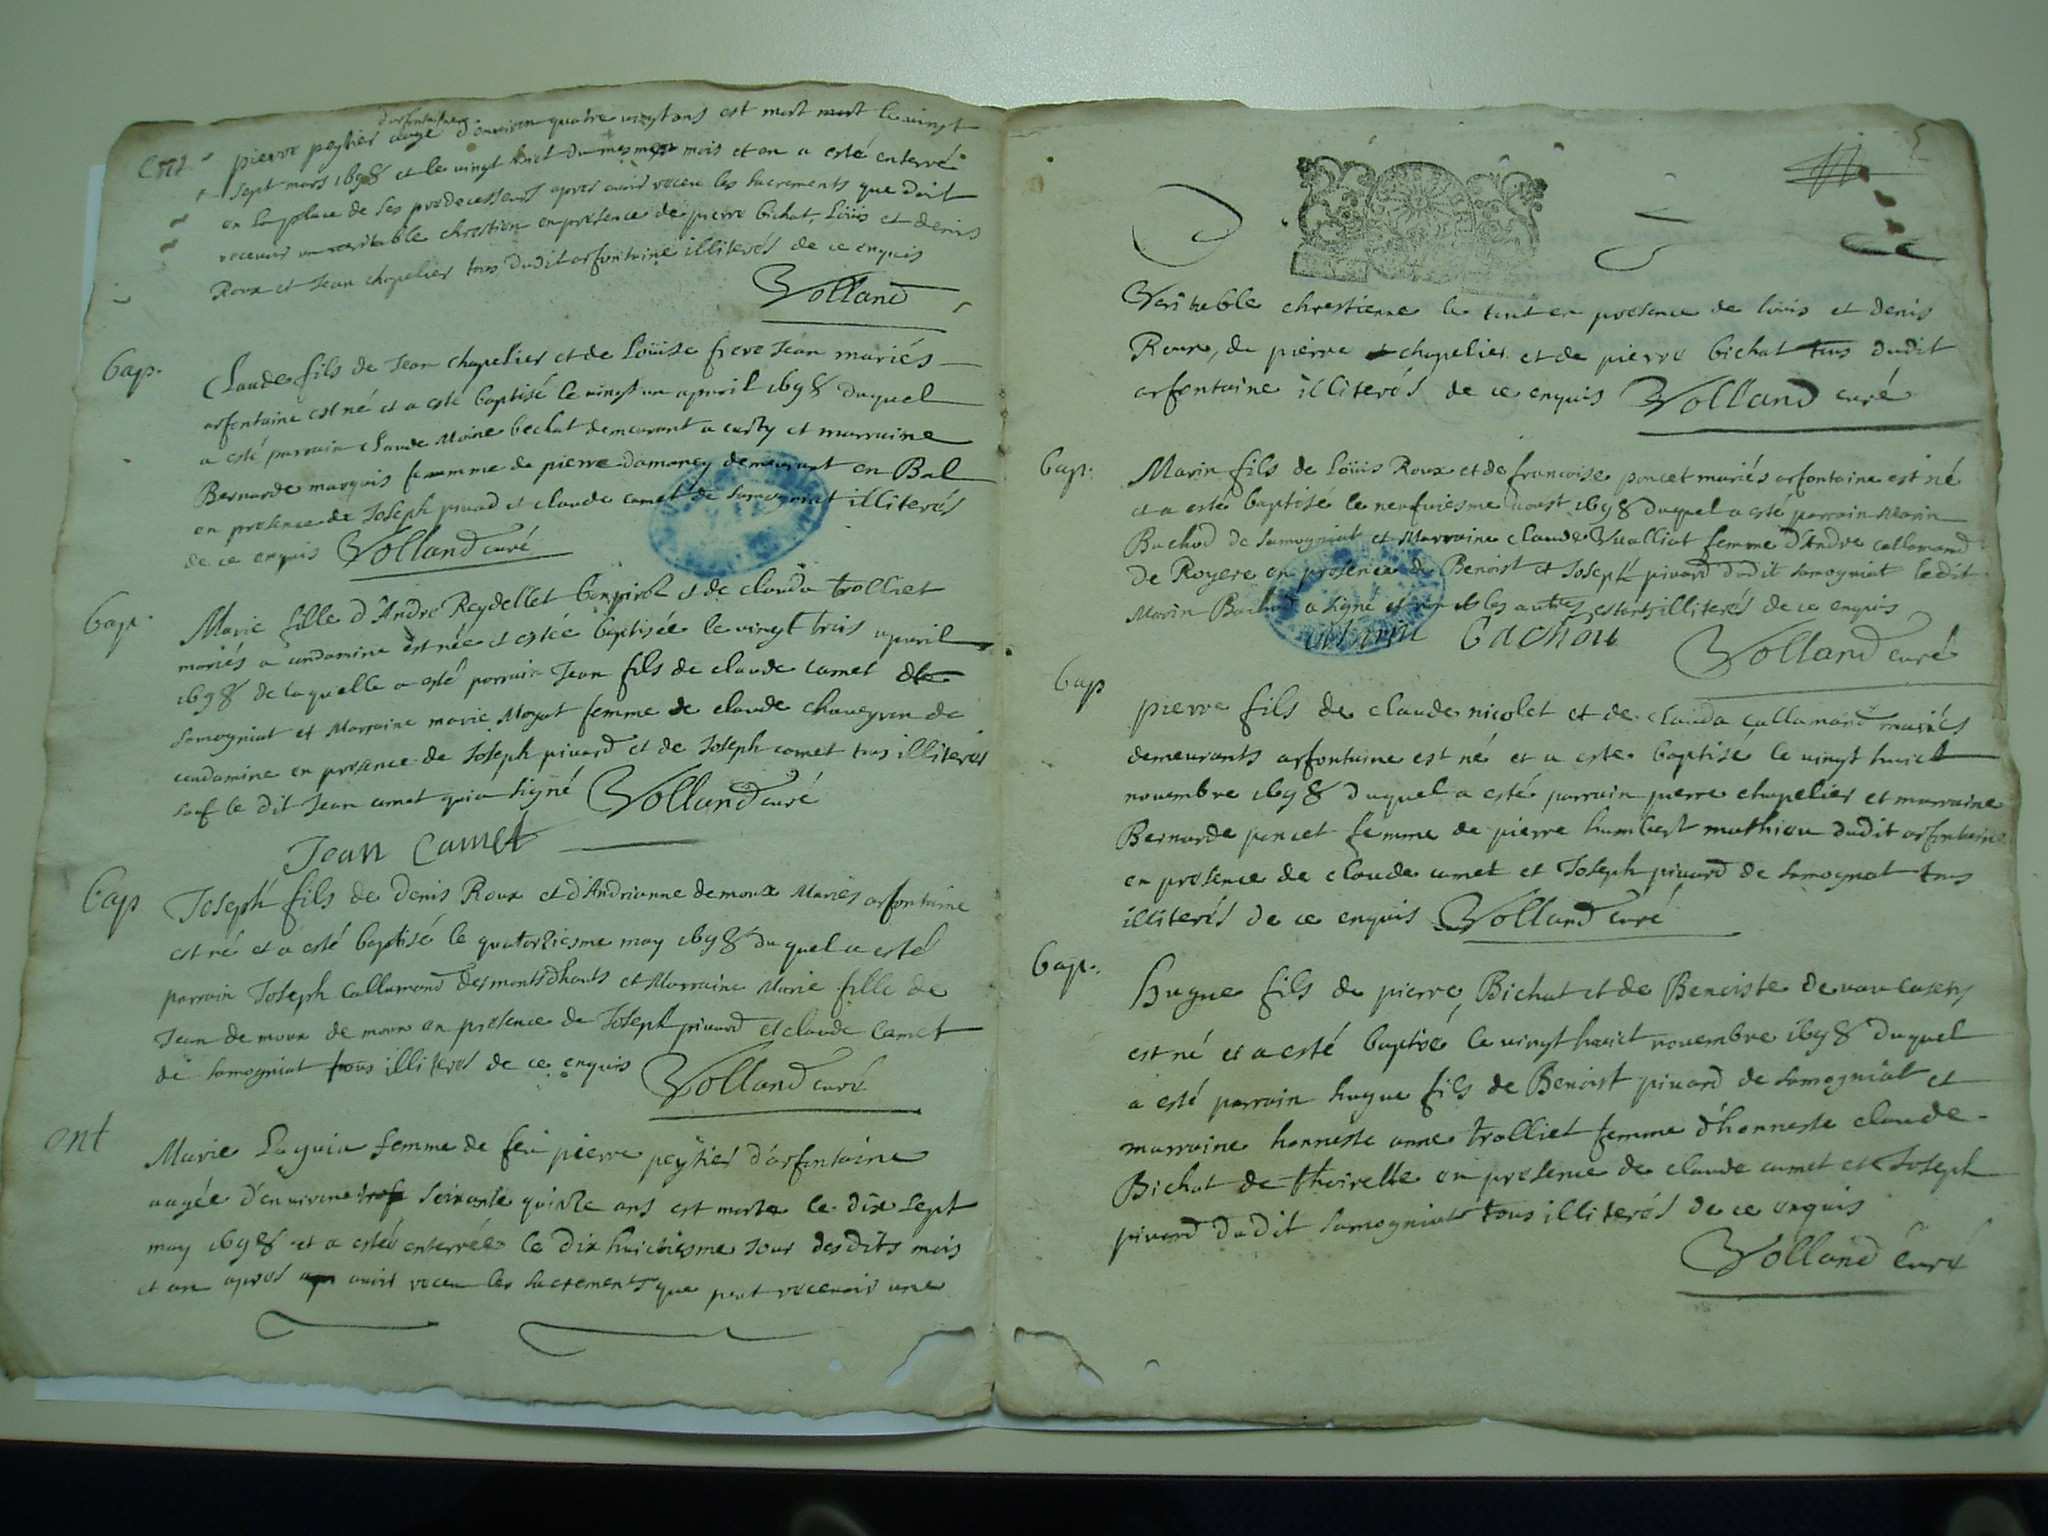 d'orfontaine
Ent
pierre peytier aagé d'environ quatre vingt ans est mort mort le vingt
sept mars 1698 et le vingt huict du mesme mois et an a esté enterré
en la place de ses predecesseurs apres avoir receu les sacrements que doit
recevoir un veritable chrestien en presence de pierre bichat, Loüis et denis
Roux et Jean chapelier tous dudit orfontaine illiterés de ce enquis
Volland
bap.
Claude fils de Jean chapelier et de Loüise frere Jean mariés
orfontaine est né et a esté baptisé le vingt un apvril 1698 duquel
a esté parrain claude Moine bechat demeurant a and marraine
Bernarde marquis femme de pierre damancy demeurant en Bal
en presence de Joseph pivard et claude camet de Samogniat illiterés
de ce enquis Volland curé
bap.
Marie fille d'André Reydellet bonpirol et de clauda trolliet
mariés a condamine est née et estée baptisée le vingt trois apvril
1698 de laquelle a esté parrain Jean fils de claude camet de
Samogniat et Marraine marie Moyat femme de claude chaveyron de
condamine en presence de Joseph pivard et de Joseph camet tous illiterés
sauf le dit Jean camet qui a signé Volland curé
Jean Camet
bap
Joseph fils de denis Roux et d'Andrianne demoux Mariés orfontaine
est né et a esté baptisé le quatorziesme may 1698 duquel a esté
parrain Joseph Callamard des monts d'hauts et Marraine Marie fille de
Jean de moux de moux en presence de Joseph pivard et claude Camet
de Samogniat tous illiterés de ce enquis Volland curé
ent
Marie Laguia femme de feu pierre peytier d'orfontaine
aagée d'environ soixante quinze ans est morte le dix sept
may 1698 et a estée enterrée le dix huictiesme jour desdits mois
et an apres avoir receu les sacrements que peut recevoir une
5
Veritable chrestienne le tout en presence de loüis et denis
Roux, de pierre chapelier et de pierre bichat tous dudit
orfontaine illiterés de ce enquis Volland curé
bap.
Marin fils de Loüis Roux et de francoise poncet mariés orfontaine est né
et a esté baptisé le neufviesme aoust 1698 duquel a esté parrain Marin
Bachod de Samogniat et Marraine claude Vualliat femme d'André callamard
De Royere en presence de Benoist et Joseph pivard dudit Samogniat ledit
Marin Bachod a signé et non les autres estants illiterés de ce enquis
marin bachou
Volland curé
bap
pierre fils de claude nicolet et de clauda callamard mariés
demeurants orfontaine est né et a esté baptisé le vingt huict
novembre 1698 duquel a esté parrain pierre chapelier et marraine
Bernarde poncet femme de pierre humbert mathieu dudit orfontaine
en presence de claude camet et Joseph pivard de Samogniat tous
illiterés de ce enquis Volland curé
bap.
Hugue fils de pierre Bichat et de Benoiste de
est né et a esté baptisé le vingt huict novembre 1698 duquel
a esté parrain hugue fils de Benoist pivard de Samogniat et
marraine honneste anne trolliet femme d'honneste claude
Bichat de thoirette en presence de claude camet et Joseph
pivard dudit Samogniat tous illiterés de ce enquis
Volland curé